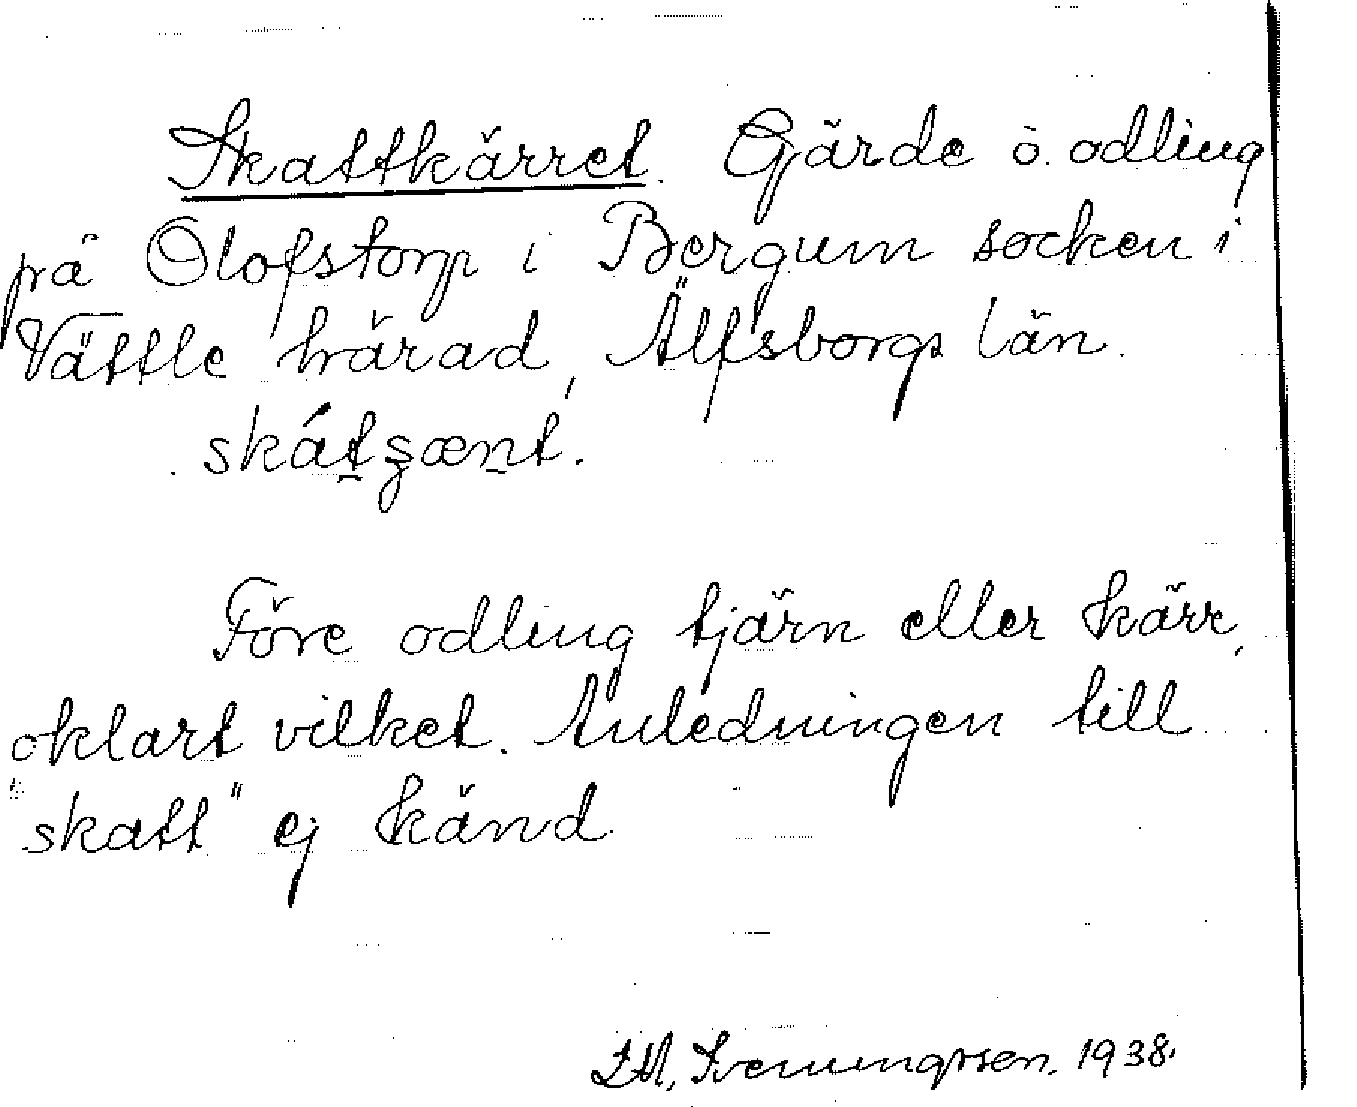 Skattkärret. Gärde o. odling
på Olofstorp i Bergum socken i
Vättle härad, Älfsborgs län.
skátʂænt.
Före odling tjärn eller kärr,
oklart vilket. Anledningen till
"skatt" ej känd.
Svenungsson. 1938.